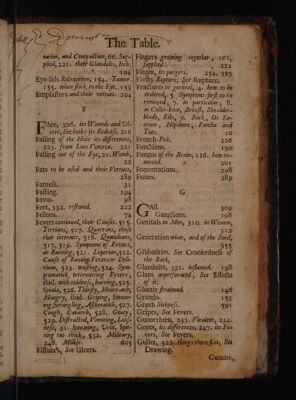 The Table.
nation, and Contraction, 66. Sup-
plied, 221. their Glandules, Itch.
194
Eye-lids Relaxation, 154. Tumor.
155. when stuck to the Eye. 153
Emplaisters and their vertues. 294
F
FAce, 326. its Wounds and Ul-
cers, See both: its Redness. 216
Falling of the Hair its differences,
223. from Lues Venerea. 221
Falling out of the Eye, 21. Womb,
22
Fats to be used and their Vertues,
289
Fatness. 31
Fasting. 194
Favus. 98
Feet, 332. restored. 222
Fellons. 74
Fevers continued, their Causes. 515.
Tertians, 517. Quartans, those
that intermit, 518. Quotidians,
517, 519. Symptoms of Fevers,
as Burning, 521. Leiperian, 522.
Cause of Raving-Fevers or Deli-
rium, 523. wasting, 524. Sym-
ptomatick intermitting Fevers,
ibid. with coldness, burning, 525.
Spirula, 526. Thirsty, Heart-ach,
Hungry, ibid. Griping, Swoon-
ing, Serangling, Asthmatick, 527.
Cough, Catarrh, 528. Gouty
529. Distracted, Vomiting, Loos-
ness, 31. Sweating, Urin, Spit-
ting too thick, 532. Military,
248. Milkie. 605
Fistula's, See Ulcers.
Fingers growing together, 161,
supplied. 222
Flegm, its purgers. 254, 393
Fleshy Rupture, See Rupture.
Fractures in general, 4. how to be
ordered, 5. Symptoms first to be
removed, 7. in particular, 8.
as Coller-bone, Breast, Shoulder-
blade, Ribs, 9. Back, Os Sa-
crum, Hip-bone, Patella and
10
French-Pox, 226
Functions. 190
Fungus of the Brain, 126. how re-
moved. 201
Fomentations. 298
Fumes. 289
G
GAll. 309
Ganglions. 198
Genitals in Men, 310. in Women,
312
Generation what, and of the Seed,
355
Gibbosities, See Crookedness of
the Back,
Glandules, 331. inflamed. 198
Glans unperforated, See Effects
of it.
Glottis strained. 148
Grando. 153
Green Sickness. 591
Gripes, See Fevers.
Gonorrhœa, 233. Virulent, 234.
Gouts, its differences, 247. its Fe-
vers, See Fevers.
Gullet, 322. things there fixt, See
Drawing.
Gummi,